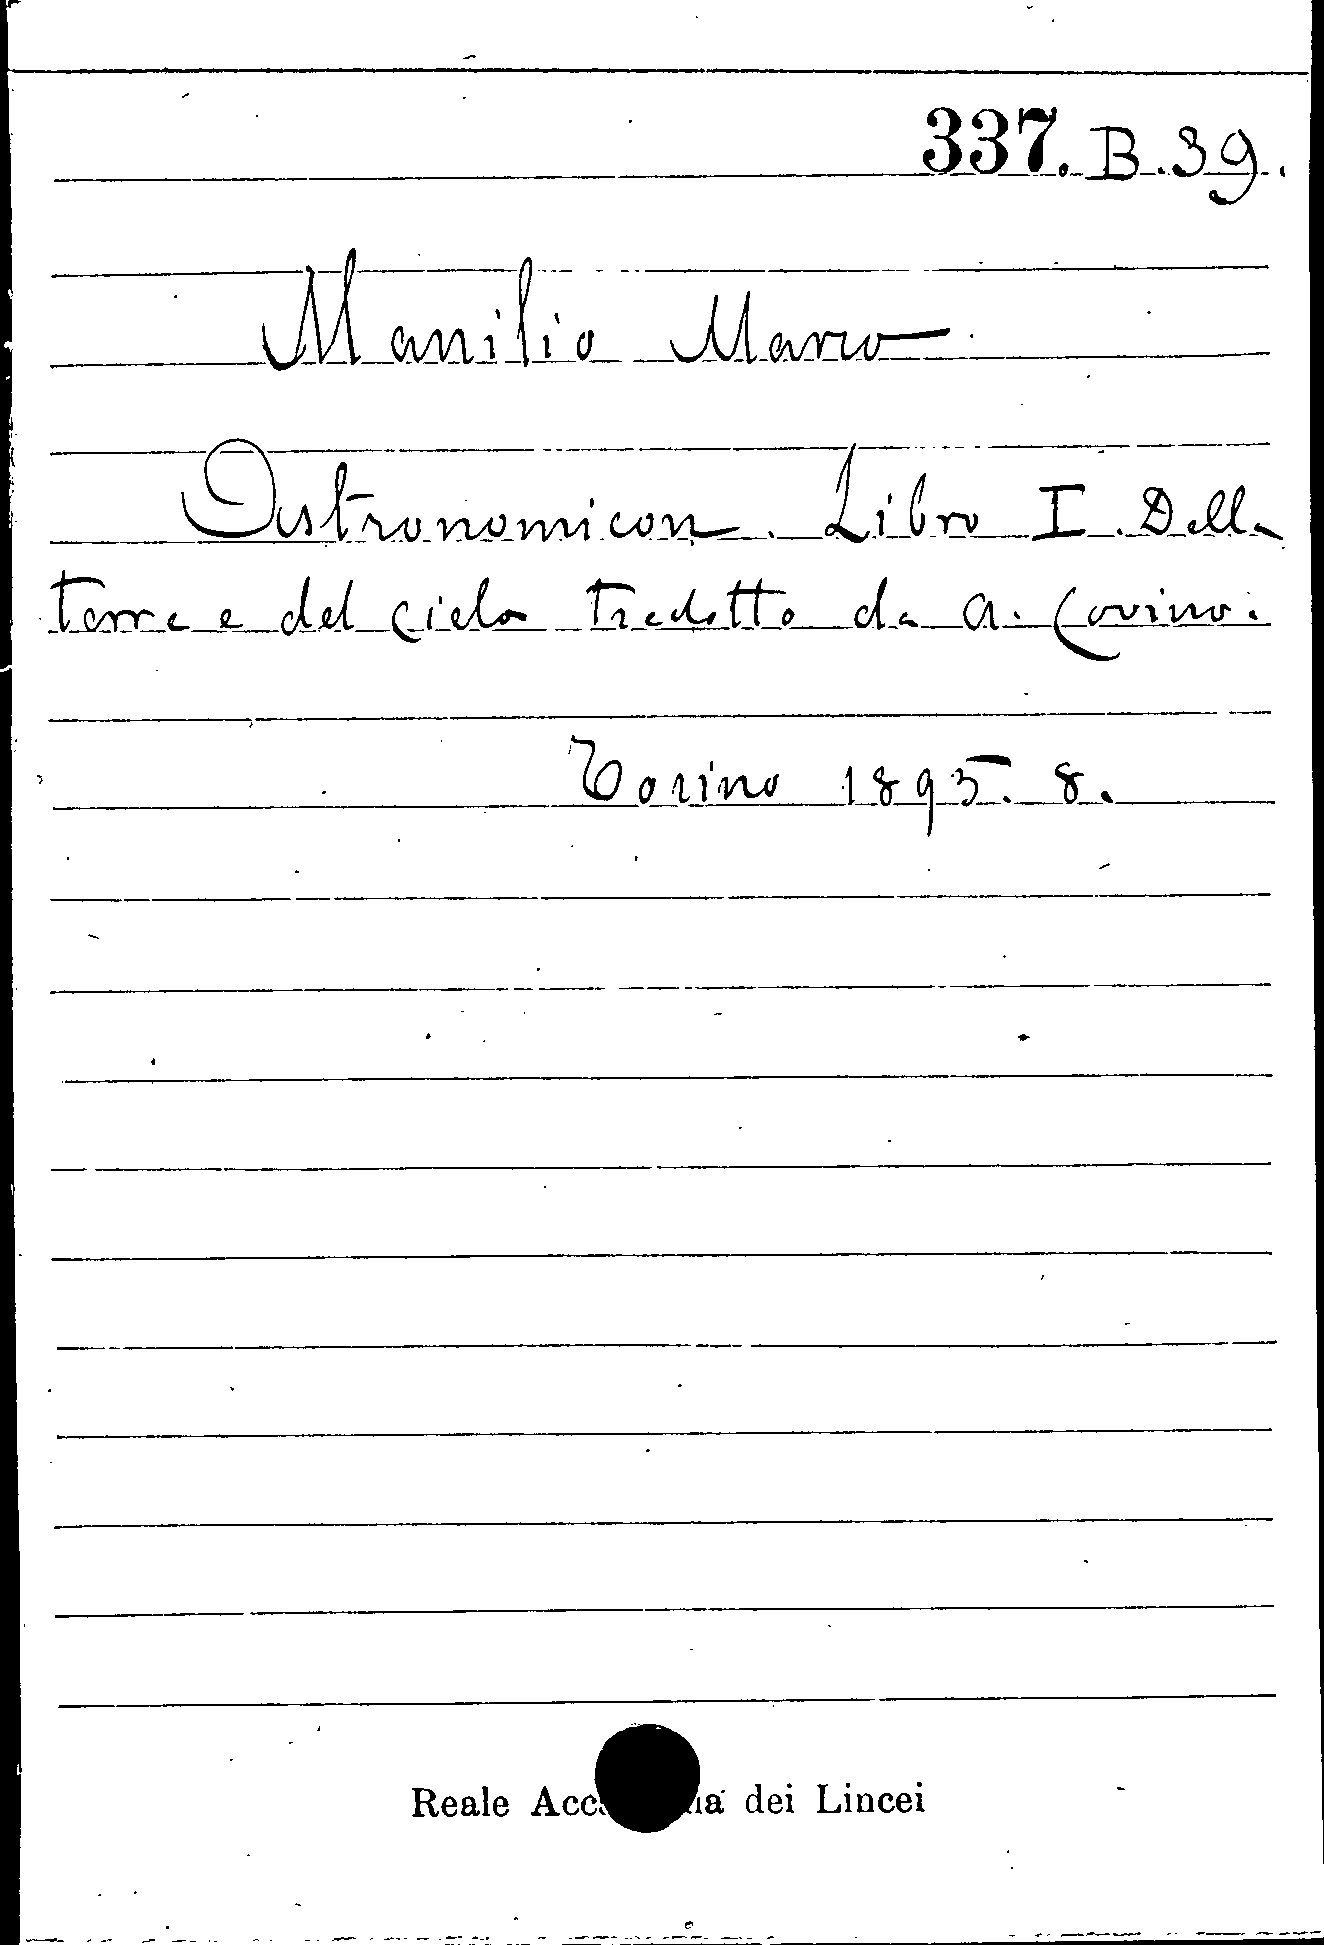 337. B. 39.
Manilio Marco
Astronomicon. Libro I. Della
terra e del cielo tradotto da A. Covino.
Torino 1895. 8.
Reale Acc ia dei Lincei